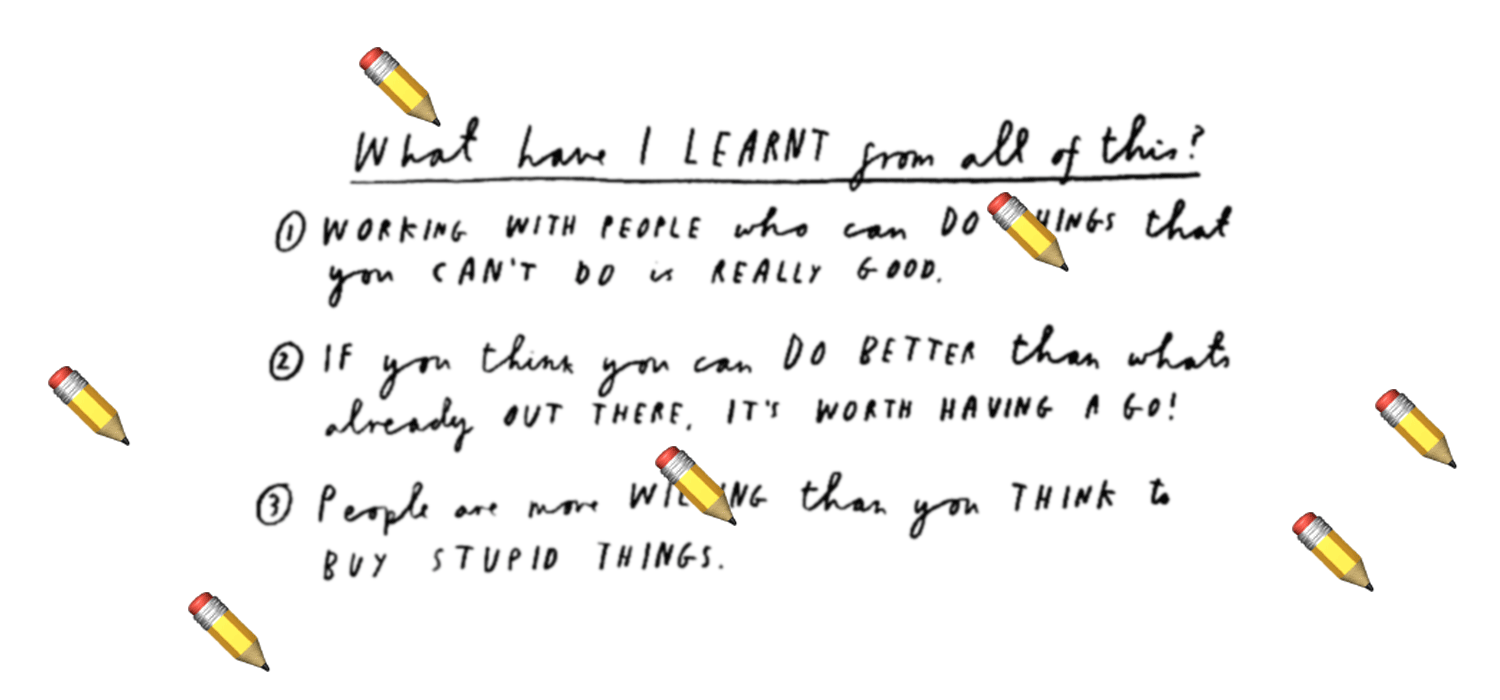 What have I LEARNT from all of this?
① WORKING WITH PEOPLE who can DO THINGS that
you CAN'T DO is REALLY GOOD.
② IF you think you can DO BETTER than whats
already OUT THERE, IT'S WORTH HAVING A GO!
③ People are more WILLING than you THINK to
BUY STUPID THINGS.